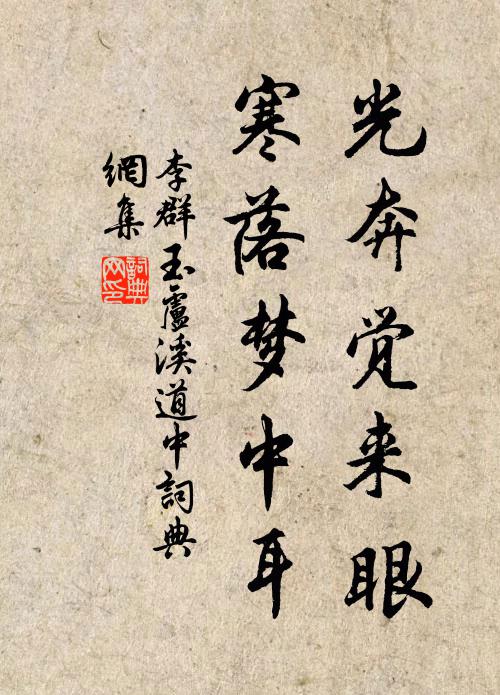 光奔觉来眼
寒落梦中耳
李群玉盧溪道中詞典
網集
詞典网印